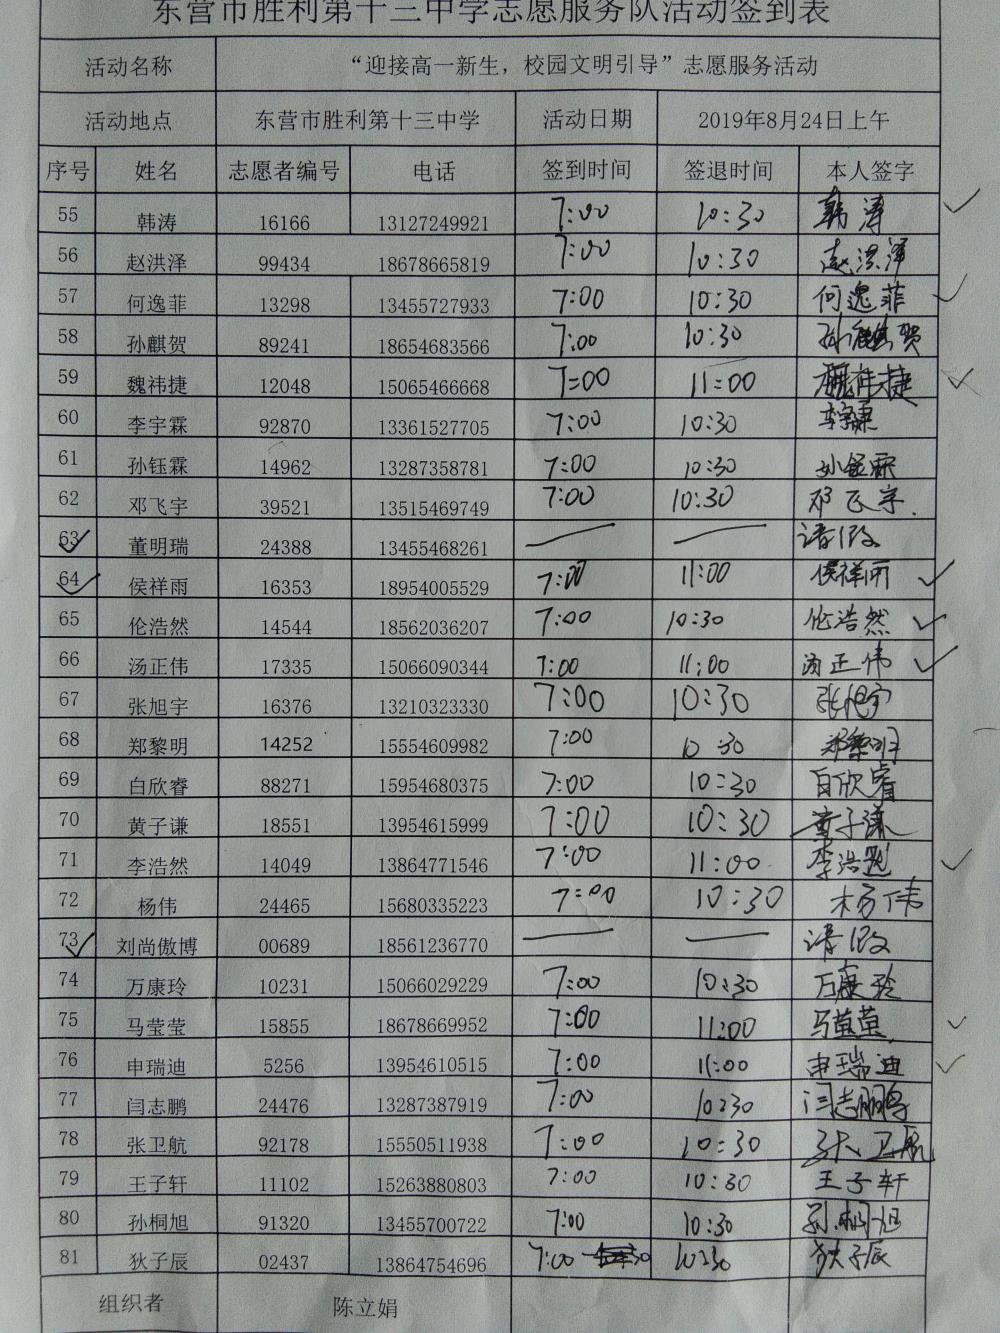 东营市胜利第十三中学志愿服务队活动签到表
活动名称 “迎接高一新生，校园文明引导”志愿服务活动
活动地点 东营市胜利第十三中学 活动日期 2019年8月24日上午
序号 姓名 志愿者编号 电话 签到时间 签退时间 本人签字
55 韩涛 16166 13127249921 7:00 10:30 韩涛
56 赵洪泽 99434 18678665819 7:00 10:30 赵洪泽
57 何逸菲 13298 13455727933 7:00 10:30 何逸菲
58 孙麒贺 89241 18654683566 7:00 10:30 孙麒贺
59 魏祎捷 12048 15065466668 7:00 11:00 魏祎捷
60 李宇霖 92870 13361527705 7:00 10:30 李宇霖
61 孙钰霖 14962 13287358781 7:00 10:30 孙钰霖
62 邓飞宇 39521 13515469749 7:00 10:30 邓飞宇.
63 董明瑞 24388 13455468261 — — 请假
64 侯祥雨 16353 18954005529 7:00 11:00 侯祥雨
65 伦浩然 14544 18562036207 7:00 10:30 伦浩然
66 汤正伟 17335 15066090344 7:00 11:00 汤正伟
67 张旭宇 16376 13210323330 7:00 10:30 张旭宇
68 郑黎明 14252 15554609982 7:00 10:30 郑黎明
69 白欣睿 88271 15954680375 7:00 10:30 白欣睿
70 黄子谦 18551 13954615999 7:00 10:30 黄子谦
71 李浩然 14049 13864771546 7:00 11:00 李浩然
72 杨伟 24465 15680335223 7:00 10:30 杨伟
73 刘尚傲博 00689 18561236770 — — 请假
74 万康玲 10231 15066029229 7:00 10:30 万康玲
75 马莹莹 15855 18678669952 7:00 11:00 马莹莹
76 申瑞迪 5256 13954610515 7:00 11:00 申瑞迪
77 闫志鹏 24476 13287387919 7:00 10:30 闫志鹏
78 张卫航 92178 15550511938 7:00 10:30 张卫航
79 王子轩 11102 15263880803 7:00 10:30 王子轩
80 孙桐旭 91320 13455700722 7:00 10:30 孙桐旭
81 狄子辰 02437 13864754696 7:00 10:30 狄子辰
组织者 陈立娟